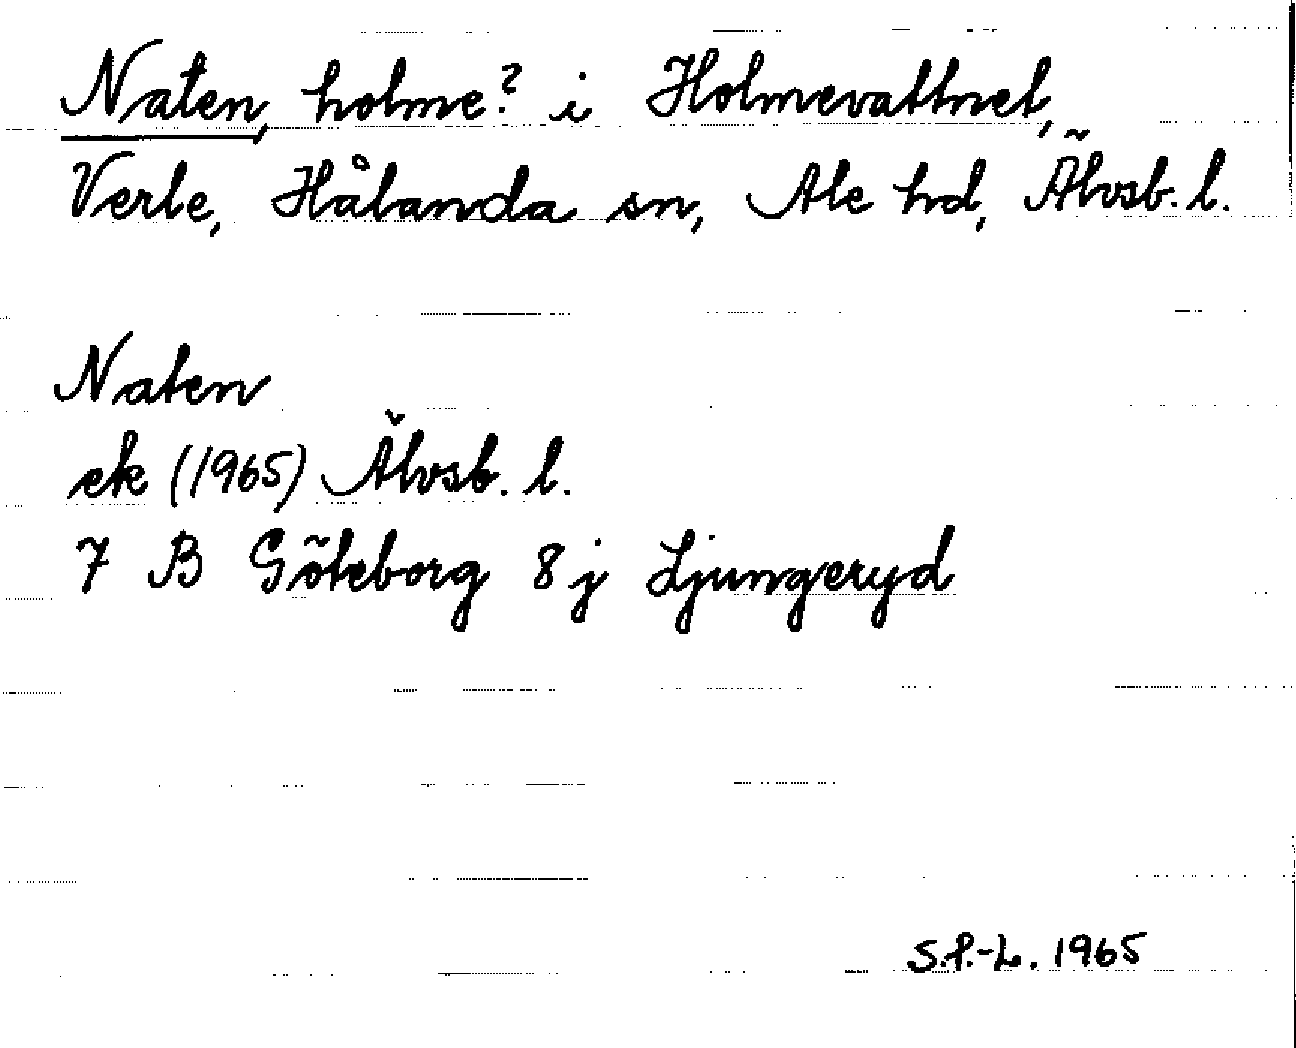 Naten, holme? i Holmevattnet,
Verle, Hålanda sn, Ale hd, Älvsb. l.
Naten
ek (1965) Älvsb. l.
7 B Göteborg 8 j Ljungeryd
S.P.-L. 1965